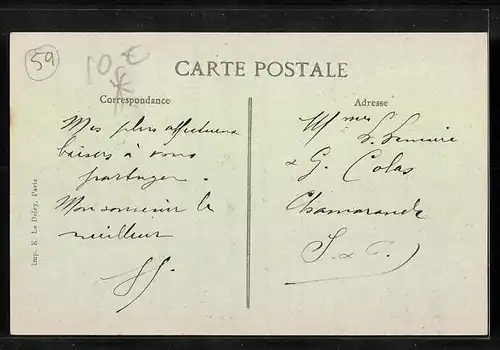 59
10 €
CARTE POSTALE
Correspondance
Adresse
Mes plus affectueux
baisers à vous
partager.
Mon souvenir le
meilleur
Mmes L. Lemaire
& G. Colas
Chamarande
S. & O.
Imp. E. Le Deley, Paris